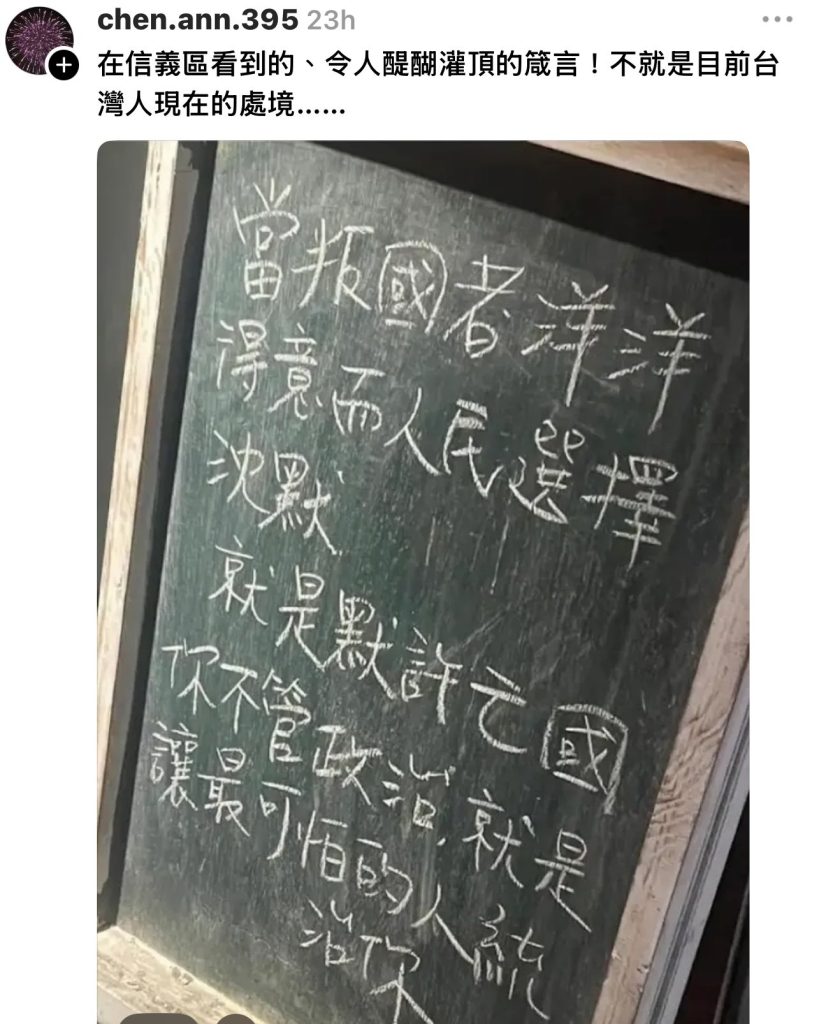 chen.ann.395 23h
在信義區看到的、令人醍醐灌頂的箴言！不就是目前台
灣人現在的處境……
當叛國者洋洋
得意而人民選擇
沈默
就是默許亡國
你不管政治,就是
讓最可怕的人統
治你